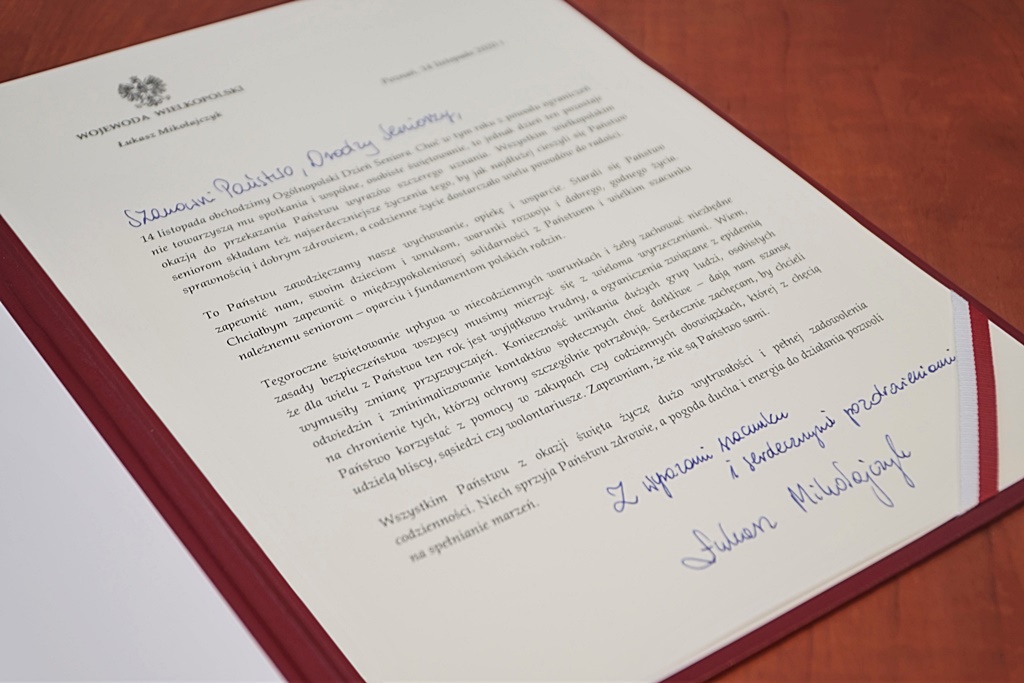 Poznań, 14 listopada 2020 r.
WOJEWODA WIELKOPOLSKI
Łukasz Mikołajczyk
Szanowni Państwo, Drodzy Seniorzy,
14 listopada obchodzimy Ogólnopolski Dzień Seniora. Choć w tym roku z powodu ograniczeń
nie towarzyszą mu spotkania i wspólne, osobiste świętowanie, to jednak dzień ten pozostaje
okazją do przekazania Państwu wyrazów szczerego uznania. Wszystkim wielkopolskim
seniorom składam też najserdeczniejsze życzenia tego, by jak najdłużej cieszyli się Państwo
sprawnością i dobrym zdrowiem, a codzienne życie dostarczało wielu powodów do radości.
To Państwu zawdzięczamy nasze wychowanie, opiekę i wsparcie. Starali się Państwo
zapewnić nam, swoim dzieciom i wnukom, warunki rozwoju i dobrego, godnego życia.
Chciałbym zapewnić o międzypokoleniowej solidarności z Państwem i wielkim szacunku
należnemu seniorom – oparciu i fundamentom polskich rodzin.
Tegoroczne świętowanie upływa w niecodziennych warunkach i żeby zachować niezbędne
zasady bezpieczeństwa wszyscy musimy mierzyć się z wieloma wyrzeczeniami. Wiem,
że dla wielu z Państwa ten rok jest wyjątkowo trudny, a ograniczenia związane z epidemią
wymusiły zmianę przyzwyczajeń. Konieczność unikania dużych grup ludzi, osobistych
odwiedzin i zminimalizowanie kontaktów społecznych choć dotkliwe – dają nam szansę
na chronienie tych, którzy ochrony szczególnie potrzebują. Serdecznie zachęcam, by chcieli
Państwo korzystać z pomocy w zakupach czy codziennych obowiązkach, której z chęcią
udzielą bliscy, sąsiedzi czy wolontariusze. Zapewniam, że nie są Państwo sami.
Wszystkim Państwu z okazji święta życzę dużo wytrwałości i pełnej zadowolenia
codzienności. Niech sprzyja Państwu zdrowie, a pogoda ducha i energia do działania pozwoli
na spełnianie marzeń.
Z wyrazami szacunku
i serdecznymi pozdrowieniami
Łukasz Mikołajczyk